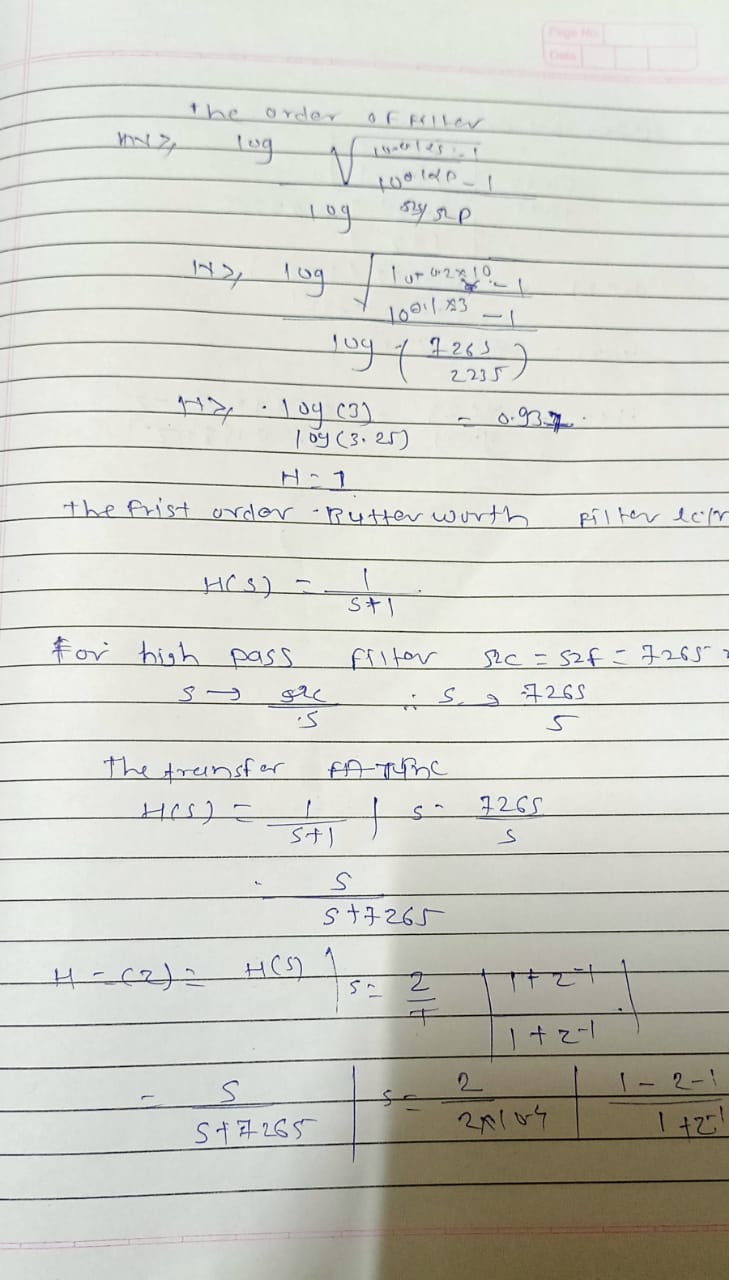 Page No.
Date
the order of filler
N≥ log √
100.1αp - 1
log Ωs/Ωp
N≥ log √
100.1×3 - 1
log ( 7265 / 2235 )
N≥ log (3) / log (3.25) = 0.937
N = 1
the frist order Butter worth filter
H(s) = 1 / s+1
For high pass filter Ωc = Ωf = 7265
s → Ωc / s ∴ s → 7265 / s
The transfer
H(s) = 1 / s+1 | s = 7265 / s
s / s+7265
H - (z) = H(s) | s = 2 / T | 1+z-1 / 1+z-1 |
= s / s+7265 | s = 2 / 2×10-4 | 1-z-1 / 1+z-1